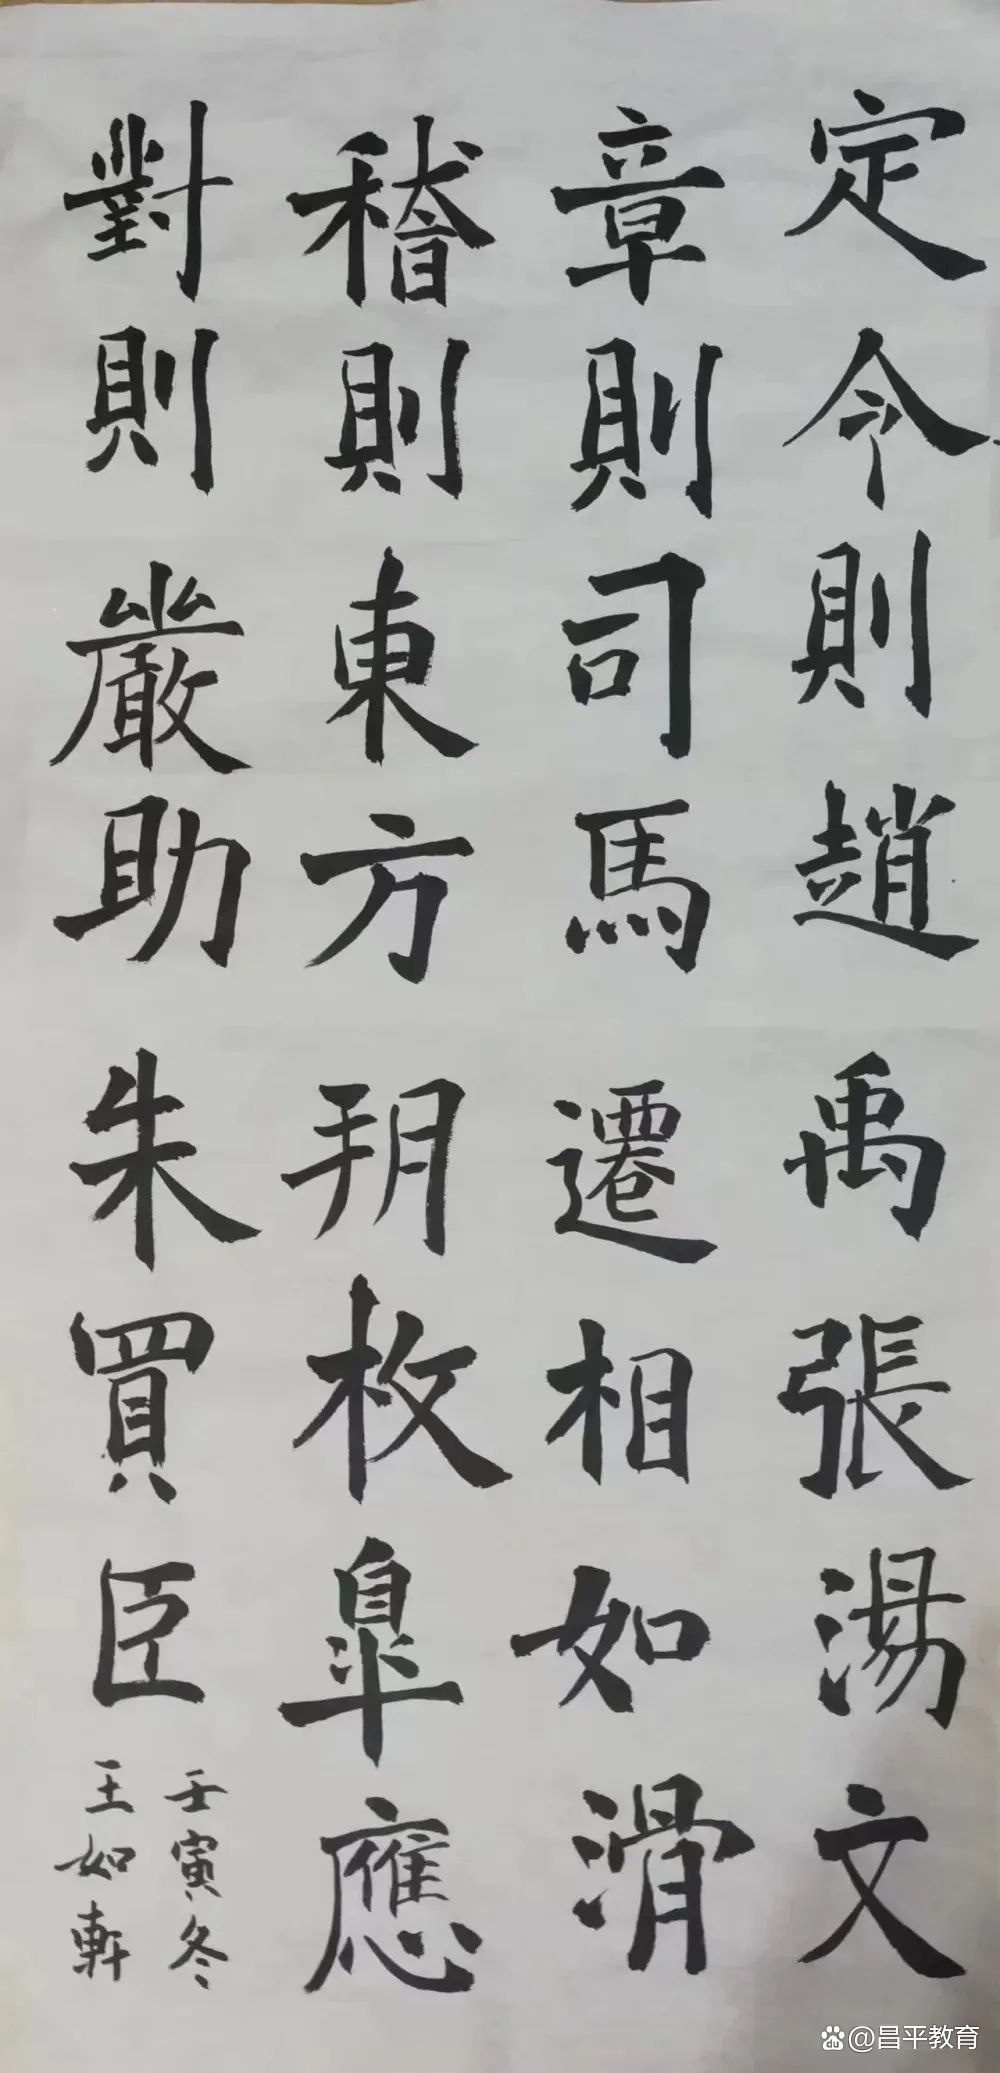 定令則趙禹張湯文
章則司馬遷相如滑
稽則東方朔枚皋應
對則嚴助朱買臣
壬寅冬
王如軒
@昌平教育